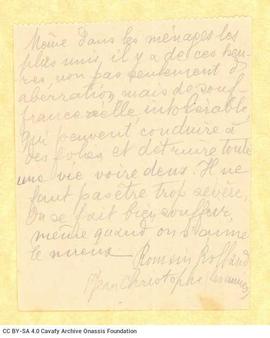 Même dans les ménages les
plus unis, il y a de ces heu-
res, non pas seulement d'
aberration, mais de souf-
france réelle, intolérable
qui peuvent conduire à
des folies et détruire toute
une vie voire deux. Il ne
faut pas être trop sévère,
On se fait bien souffrir,
même quand on s'aime
le mieux
Romain Rolland
Jean Christophe
CC BY-SA 4.0 Cavafy Archive Onassis Foundation